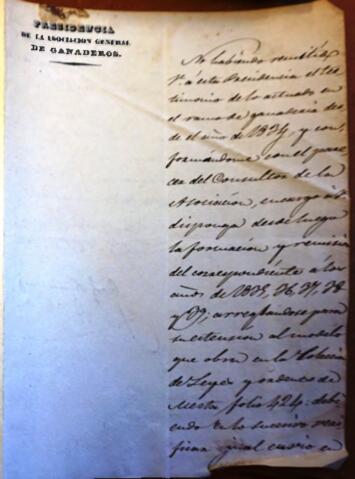 PRESIDENCIA
DE LA ASOCIACION GENERAL
DE GANADEROS.
No habiendo remitido
V. á esta Presidencia el tes
timonio de lo actuado en
el ramo de ganadería des
de el año de 1834, y con
formándome con el pare
cer del Consultor de la
Asociación, encargo á V.
disponga desde luego
la formacion y remision
del correspondiente á los
años de 1835, 36, 37, 38
y 39; arreglandose para
su estension al modelo
que obra en la Coleccion
de Leyes y ordenes de
Mesta folio 424: debi
endo en lo sucesivo veri
ficar igual envio en